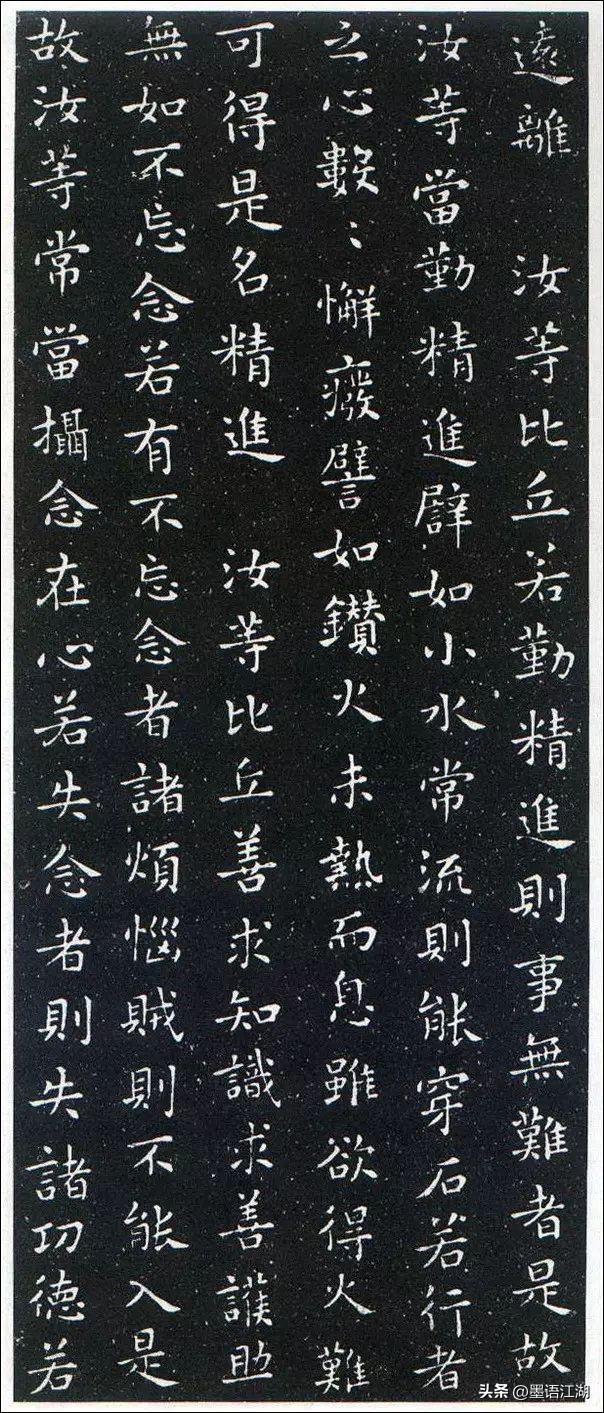 遠離　汝等比丘若勤精進則事無難者是故
汝等當勤精進譬如小水常流則能穿石若行者
之心數〻懈癈譬如鑚火未熱而息雖欲得火難
可得是名精進　汝等比丘善求知識求善護助
無如不忘念若有不忘念者諸煩惱賊則不能入是
故汝等常當攝念在心若失念者則失諸功德若
头条 @墨语江湖